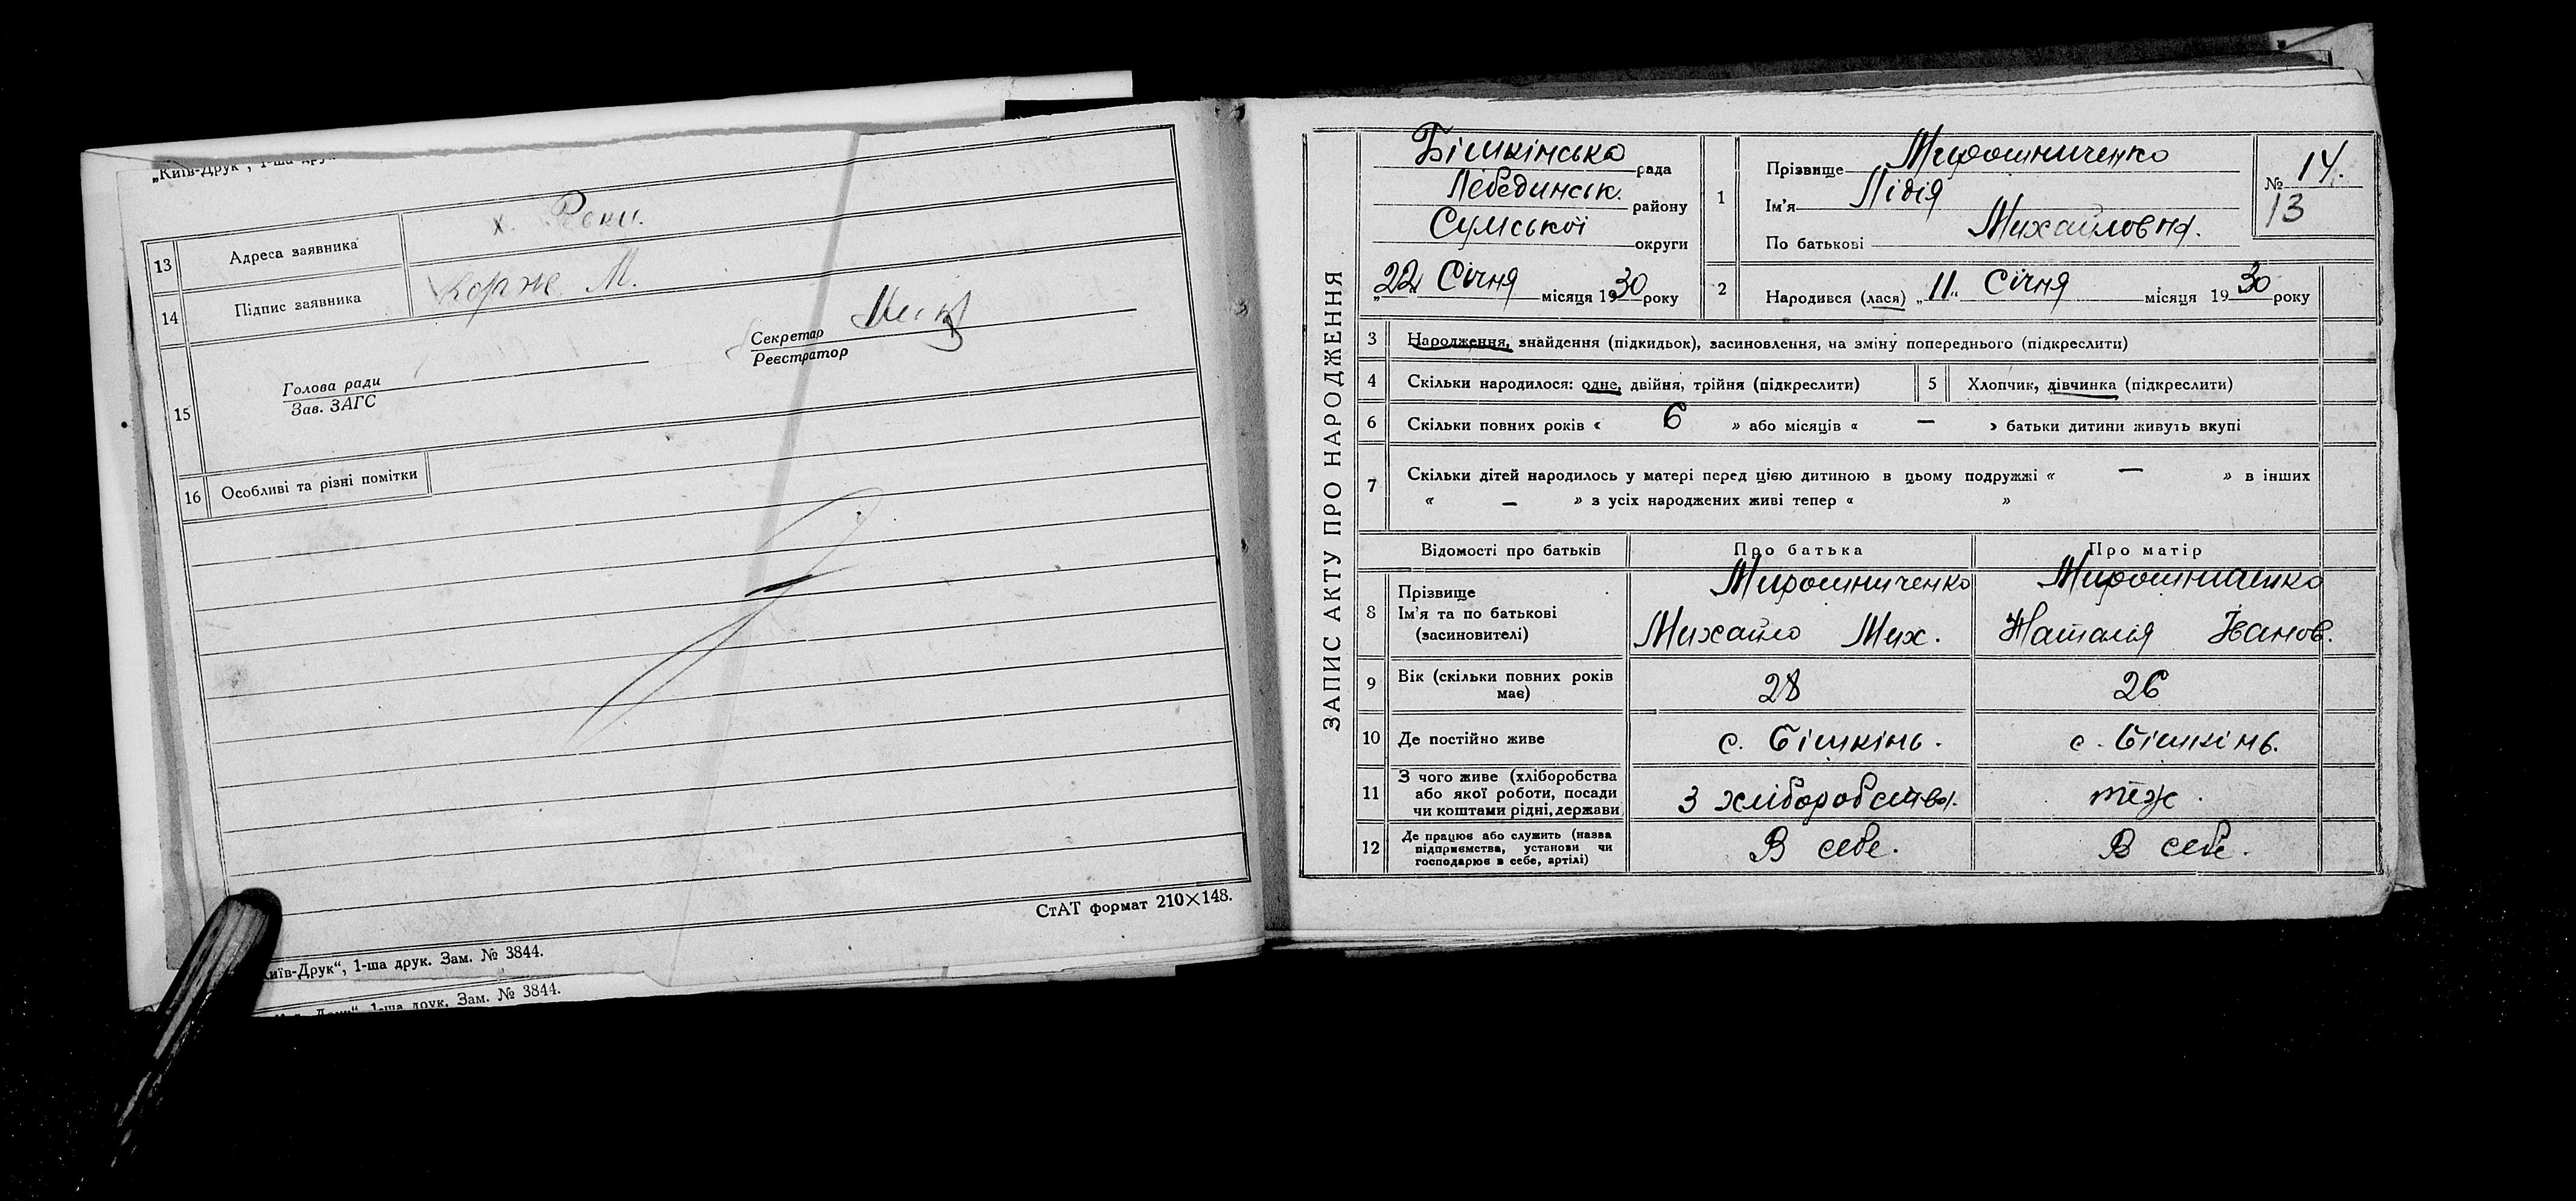 „Київ-Друк“, 1-ша друк
13 Адреса заявника х. Реки.
14 Підпис заявника Корж М.
15 Голова ради
Зав. ЗАГС
Секретар
Реєстратор
16 Особливі та різні помітки
СтАТ формат 210×148.
иїв-Друк“, 1-ша друк. Зам. № 3844.
1-ша друк. Зам. № 3844.
ЗАПИС АКТУ ПРО НАРОДЖЕННЯ
Бішкінська рада
Лебединськ. району
Сумської округи
„22 Січня місяця 1930 року
1 Прізвище Мирошниченко
Ім'я Лідія
По батькові Михайловна.
№ 14.
13
2 Народився (лася) „11“ Січня місяця 1930 року
3 Народження, знайдення (підкидьок), засиновлення, на зміну попереднього (підкреслити)
4 Скільки народилося: одне, двійня, трійня (підкреслити) 5 Хлопчик, дівчинка (підкреслити)
6 Скільки повних років « 6 » або місяців « — » батьки дитини живуть вкупі
7 Скільки дітей народилось у матері перед цією дитиною в цьому подружжі « — » в інших
« — » з усіх народжених живі тепер « »
Відомості про батьків Про батька Про матір
8 Прізвище Мирошниченко
Ім'я та по батькові Михайло Мих. Наталія Іванов.
(засиновителі)
9 Вік (скільки повних років має) 28 26
10 Де постійно живе с. Бішкінь. с. Бішкінь.
11 З чого живе (хліборобства
або якої роботи, посади
чи коштами рідні, держави З хліборобства. теж.
12 Де працює або служить (назва
підприємства, установи чи
господарює в себе, артілі) В себе. В себе.